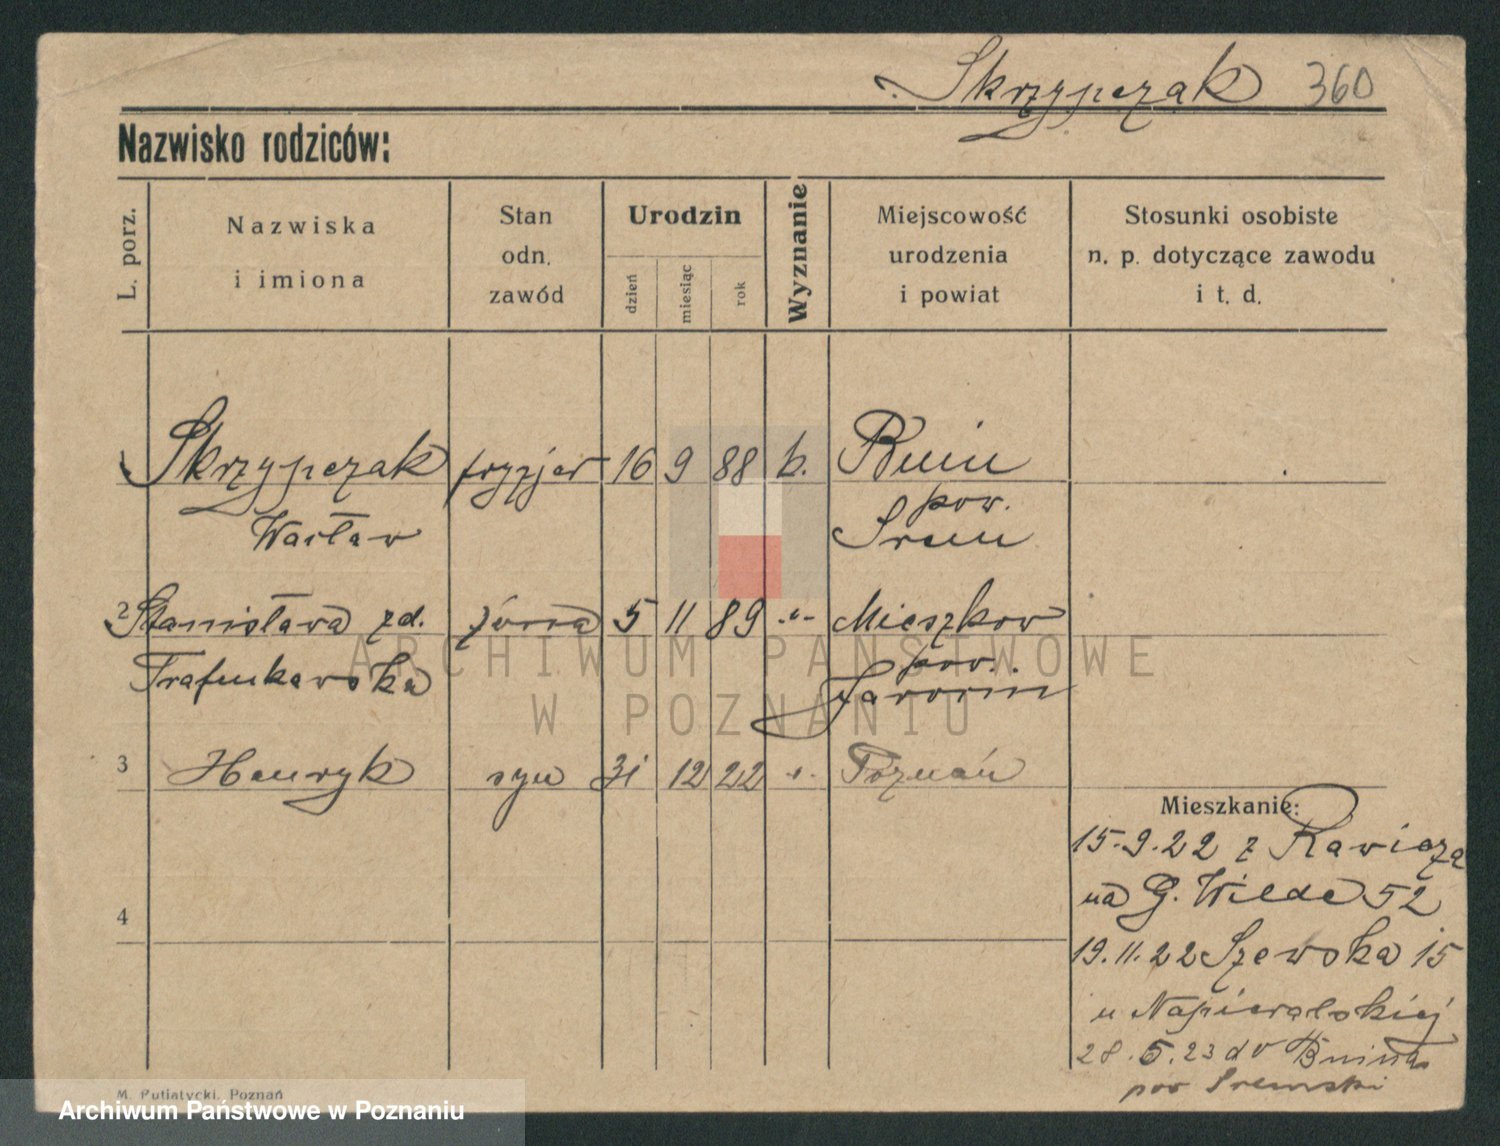 Skrzypczak 360
Nazwisko rodziców:
L. porz.
Nazwiska
i imiona
Stan
odn.
zawód
Urodzin
dzień
miesiąc
rok
Wyznanie
Miejscowość
urodzenia
i powiat
Stosunki osobiste
n. p. dotyczące zawodu
i t. d.
Skrzypczak fryzjer 16 9 88 k. Bnin
pow.
Wacław Śrem
2 Stanisława zd. żona 5 11 89 -"- Mieszków
pow.
Jarocin
3 Henryk syn 31 12 22 -"- Poznań
4
Mieszkanie:
15.9.22 z Rawicza
na G. Wilde 52
19.11.22 Szewska 15
u Napieralskiej
28.5.23 do Bnina
pow Śremski
M. Putiatycki, Poznań
ARCHIWUM PAŃSTWOWE
W POZNANIU
Archiwum Państwowe w Poznaniu